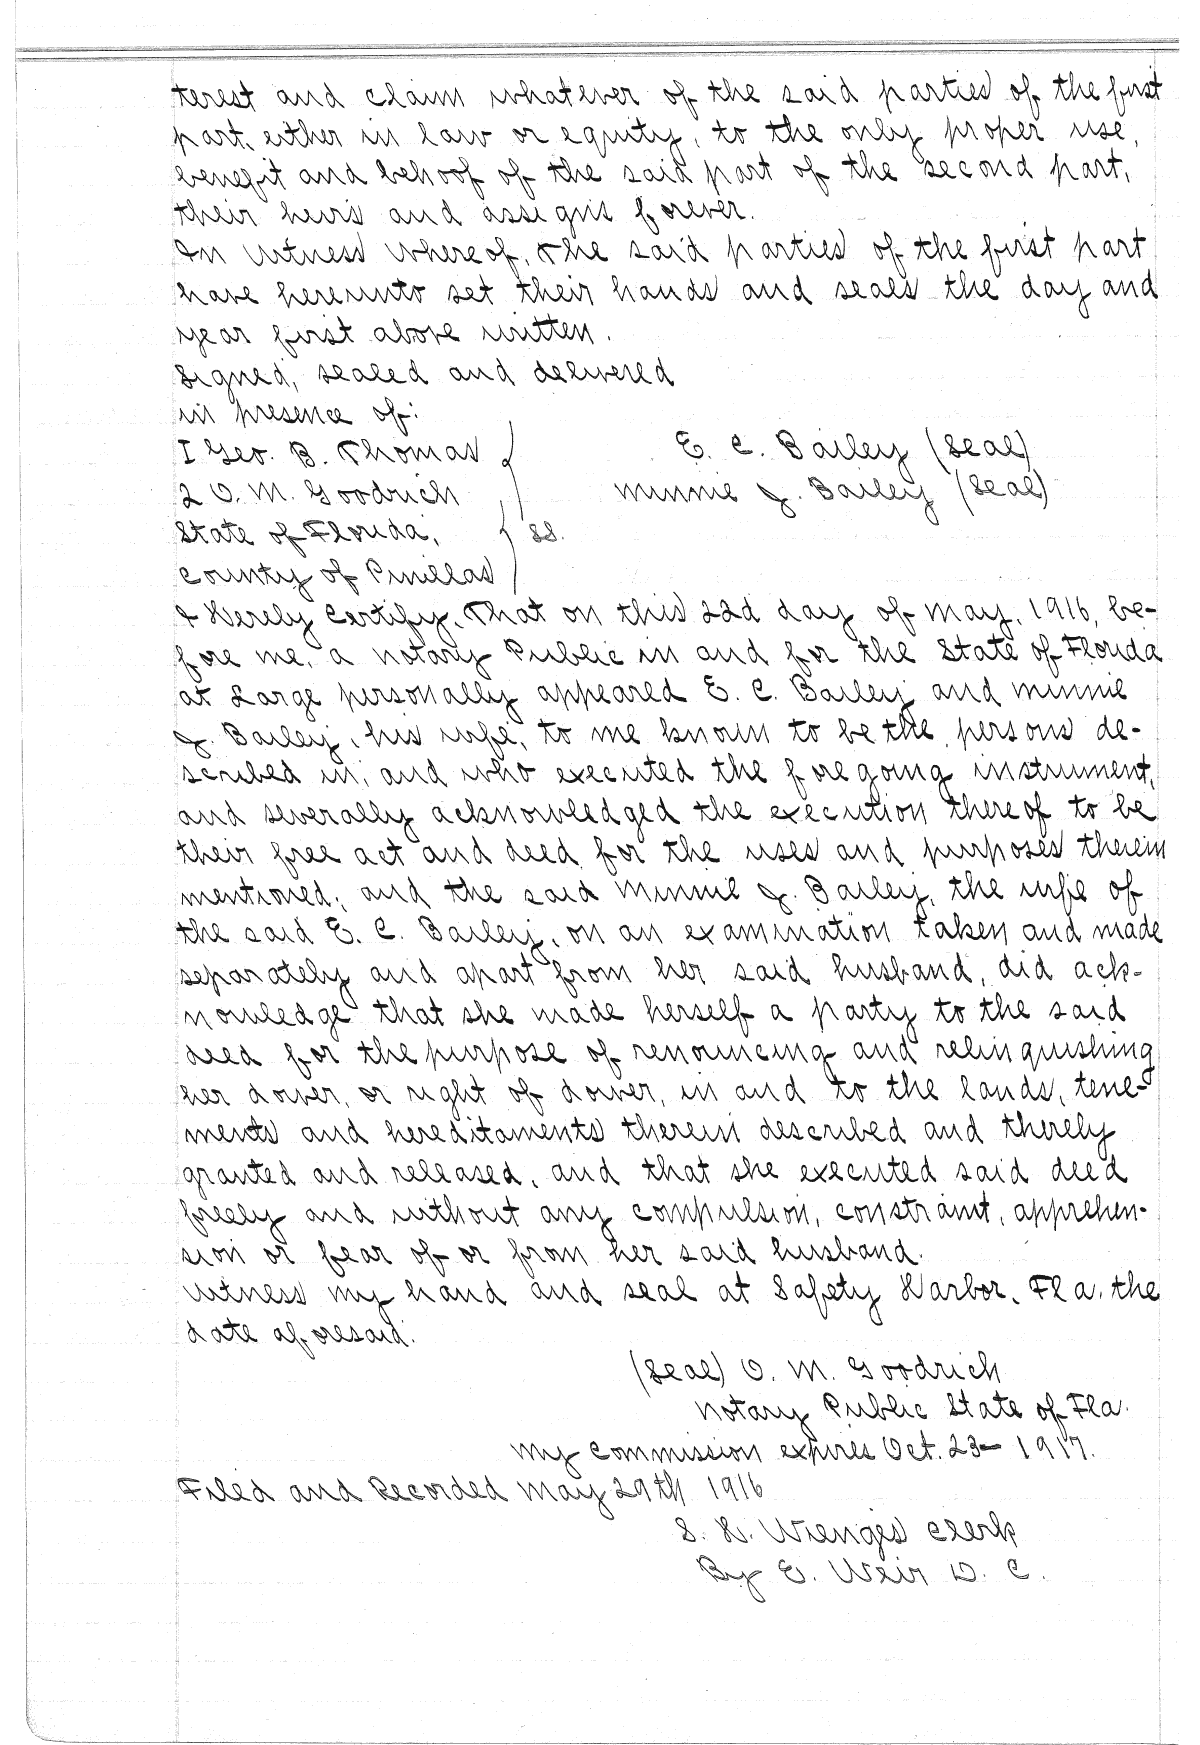 terest and claim whatever of the said parties of the first
part, either in law or equity, to the only proper use,
benefit and behoof of the said part of the second part,
their heirs and assigns forever.
In Witness Whereof, the said parties of the first part
have hereunto set their hands and seals the day and
year first above written.
Signed, sealed and delivered
in presence of:
1 Geo. B. Thomas E. C. Bailey (Seal)
2 O. M. Goodrich Minnie J. Bailey (Seal)
State of Florida, SS.
County of Pinellas
I Hereby Certify, That on this 22d day of May, 1916, be-
fore me, a Notary Public in and for the State of Florida
at Large personally appeared E. C. Bailey and Minnie
J. Bailey, his wife, to me known to be the persons de-
scribed in, and who executed the foregoing instrument,
and severally acknowledged the execution thereof to be
their free act and deed for the uses and purposes therein
mentioned; and the said Minnie J. Bailey, the wife of
the said E. C. Bailey, on an examination taken and made
separately and apart from her said husband, did ack-
nowledge that she made herself a party to the said
deed for the purpose of renouncing and relinquishing
her dower, or right of dower, in and to the lands, tene-
ments and hereditaments therein described and thereby
granted and released, and that she executed said deed
freely and without any compulsion, constraint, apprehen-
sion or fear of or from her said husband.
Witness my hand and seal at Safety Harbor, Fla. the
date aforesaid.
(Seal) O. M. Goodrich
Notary Public State of Fla.
My commission expires Oct. 23- 1917.
Filed and Recorded May 29th 1916
Clerk
By E. Weir D. C.